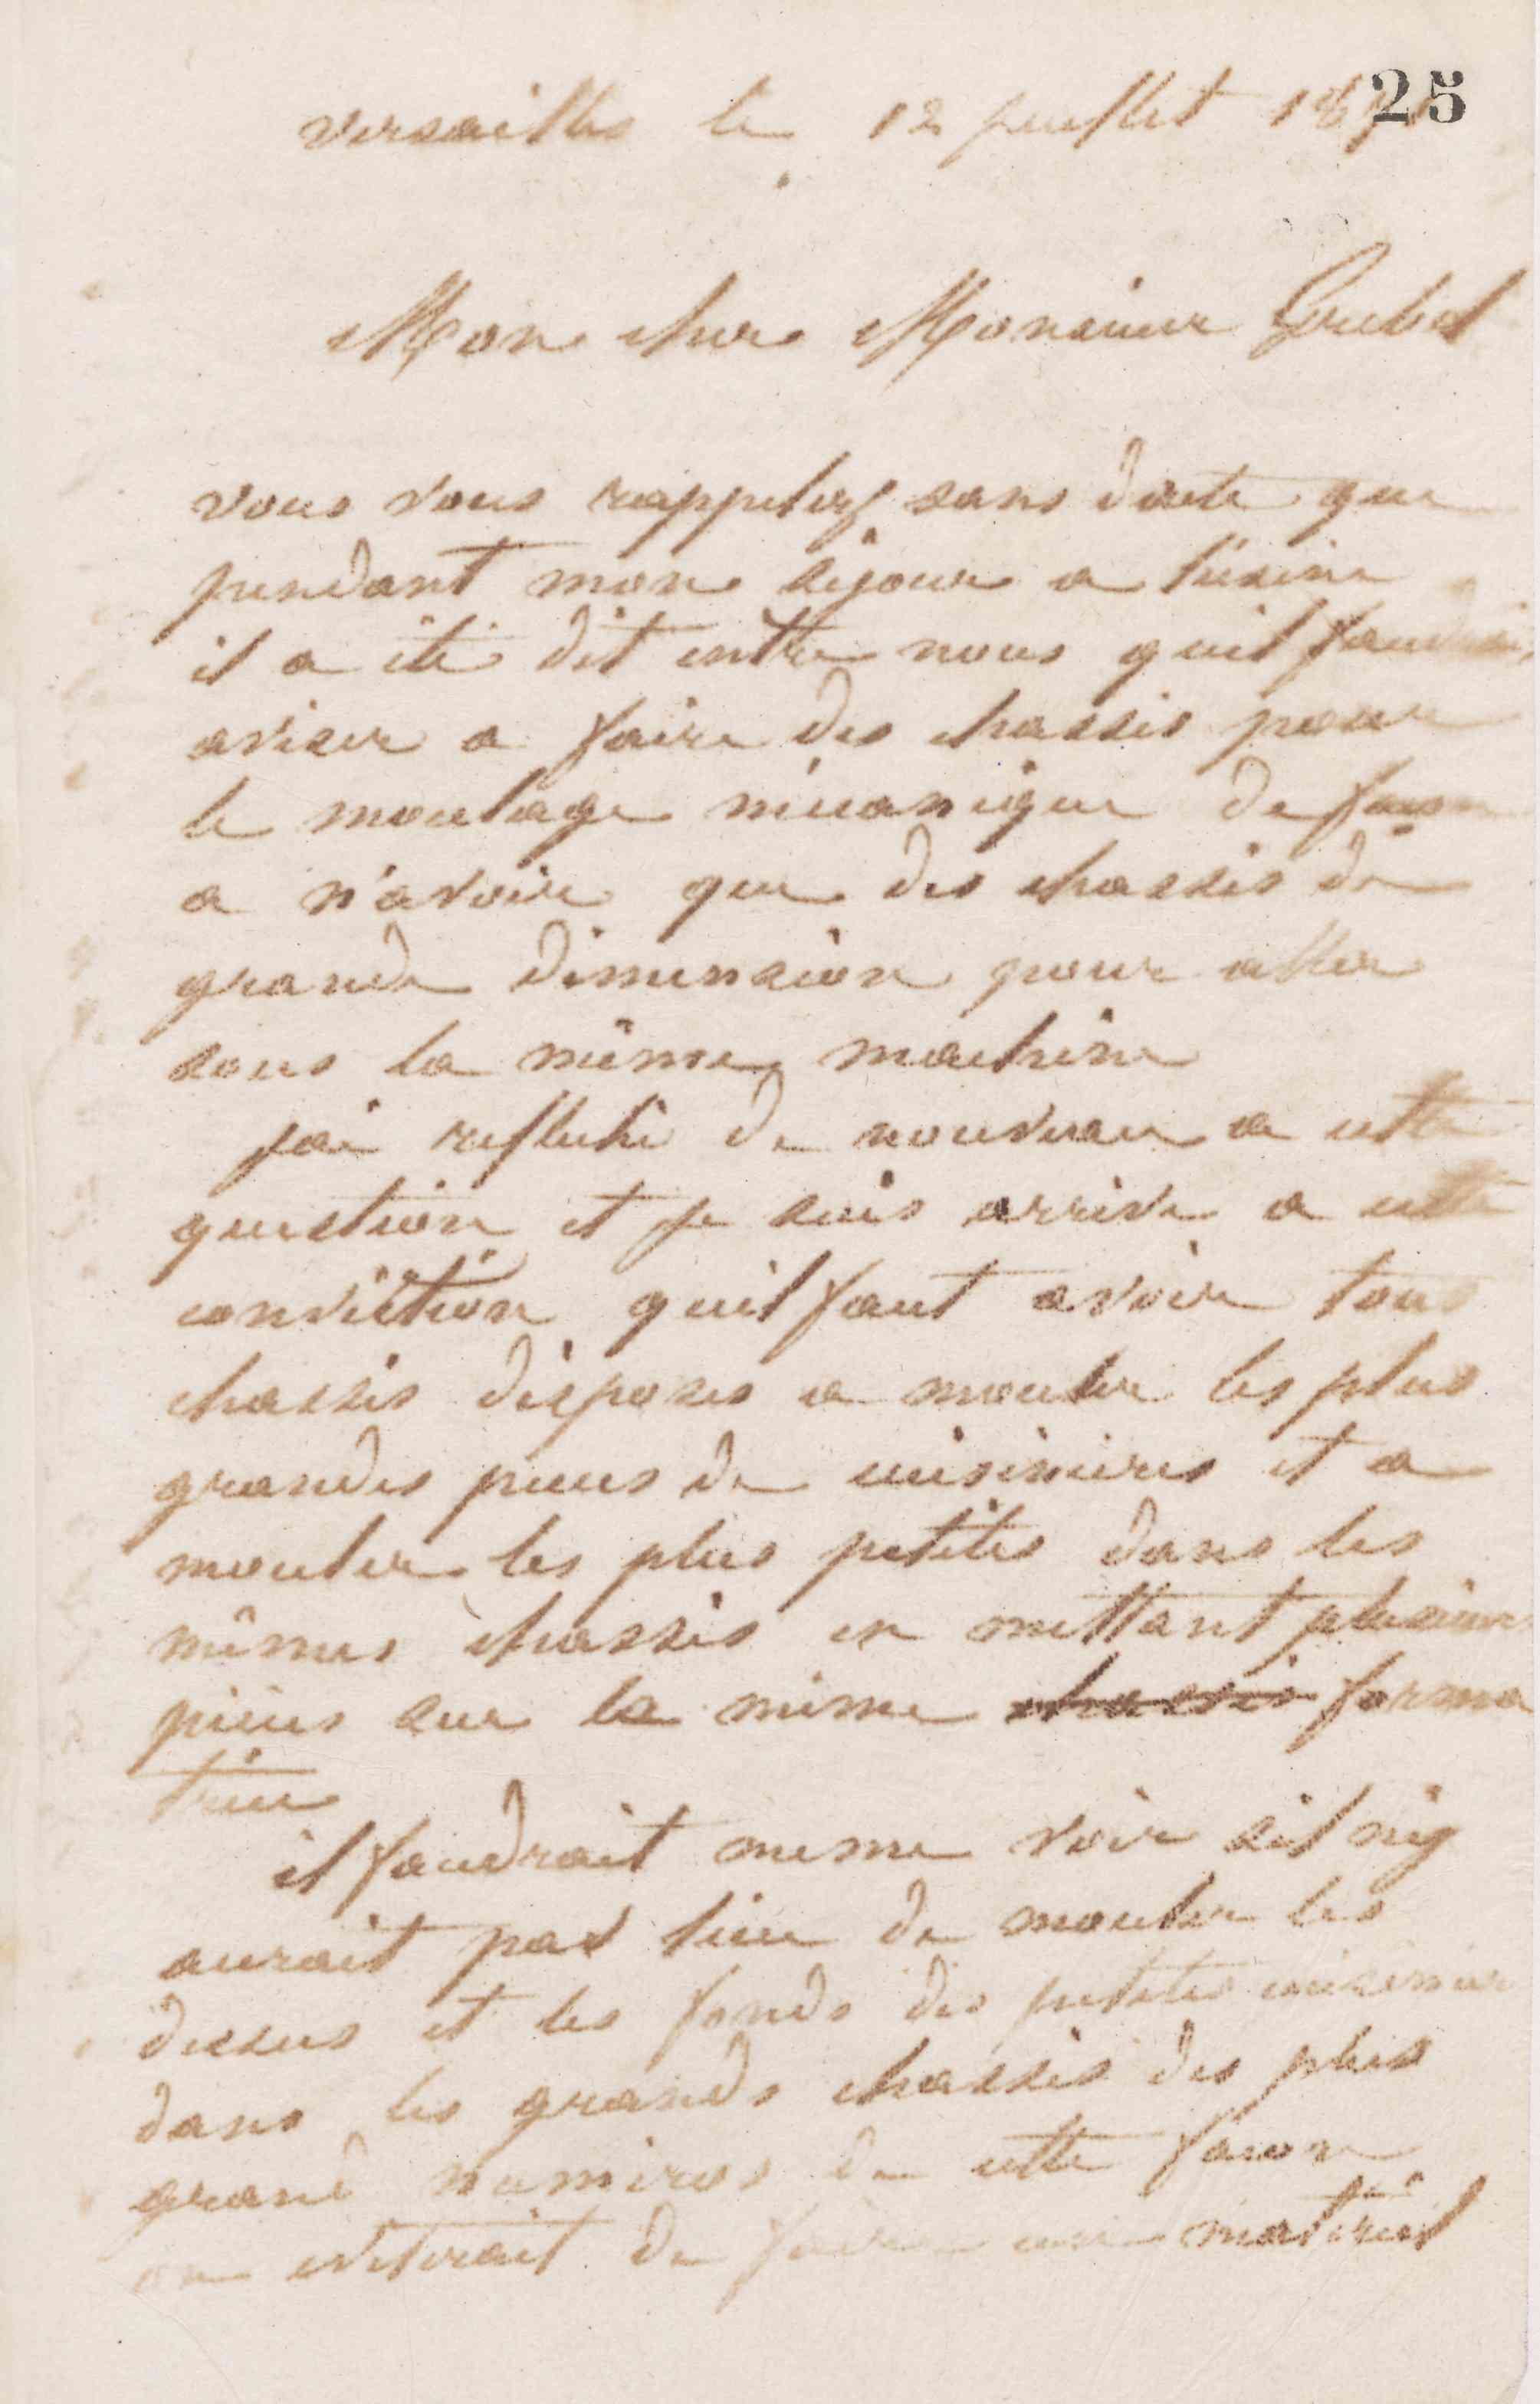 25
versailles le 12 juillet 187
Mon cher Monsieur Grebel
vous vous rappelez sans doute que
pendant mon séjour a l'usine
il a été dit entre nous quil faudrait
aviser a faire des chassis pour
le moulage mécanique de facon
a n'avoir que des chassis de
grande dimension pour aller
sous la même machine
jai reflechi de nouveau a cette
question et je suis arrive a cette
conviction quil faut avoir tous
chassis disposes a mouler les plus
grandes pieces de cuisinieres et a
mouler les plus petites dans les
mêmes chassis en mettant plusieurs
pièces sur la même chassis forma
trice
il faudrait meme voir sil n'y
aurait pas lieu de mouler les
dessus et les fonds des petites cuisinieres
dans les grands chassis des plus
grand numeros de cette facon
on eviterait de faire un matériel